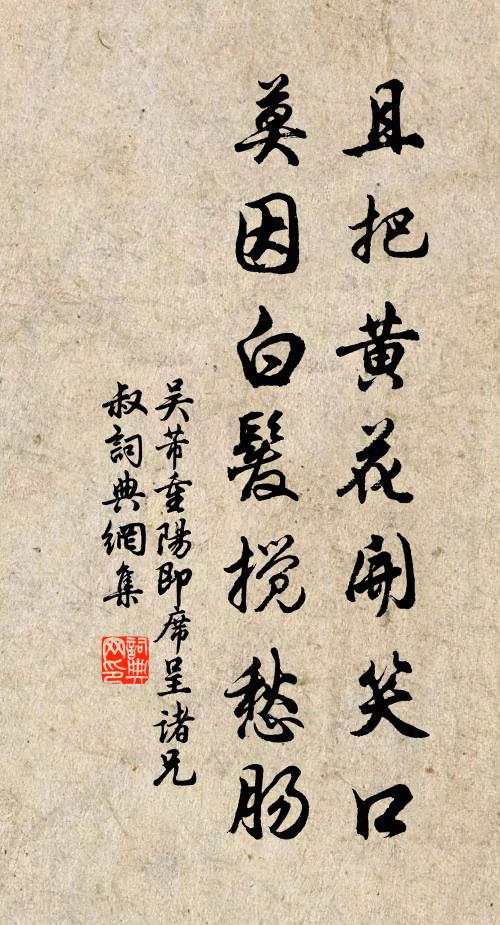 且把黄花開笑口
莫因白髮攪愁肠
吴芾重陽即席呈诸兄
叔詞典網集
詞典网印